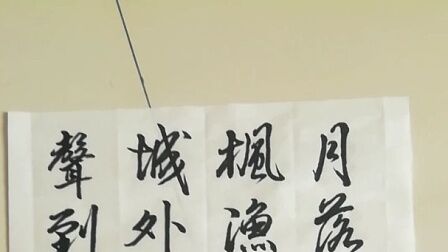 月落
楓漁
城外
聲到